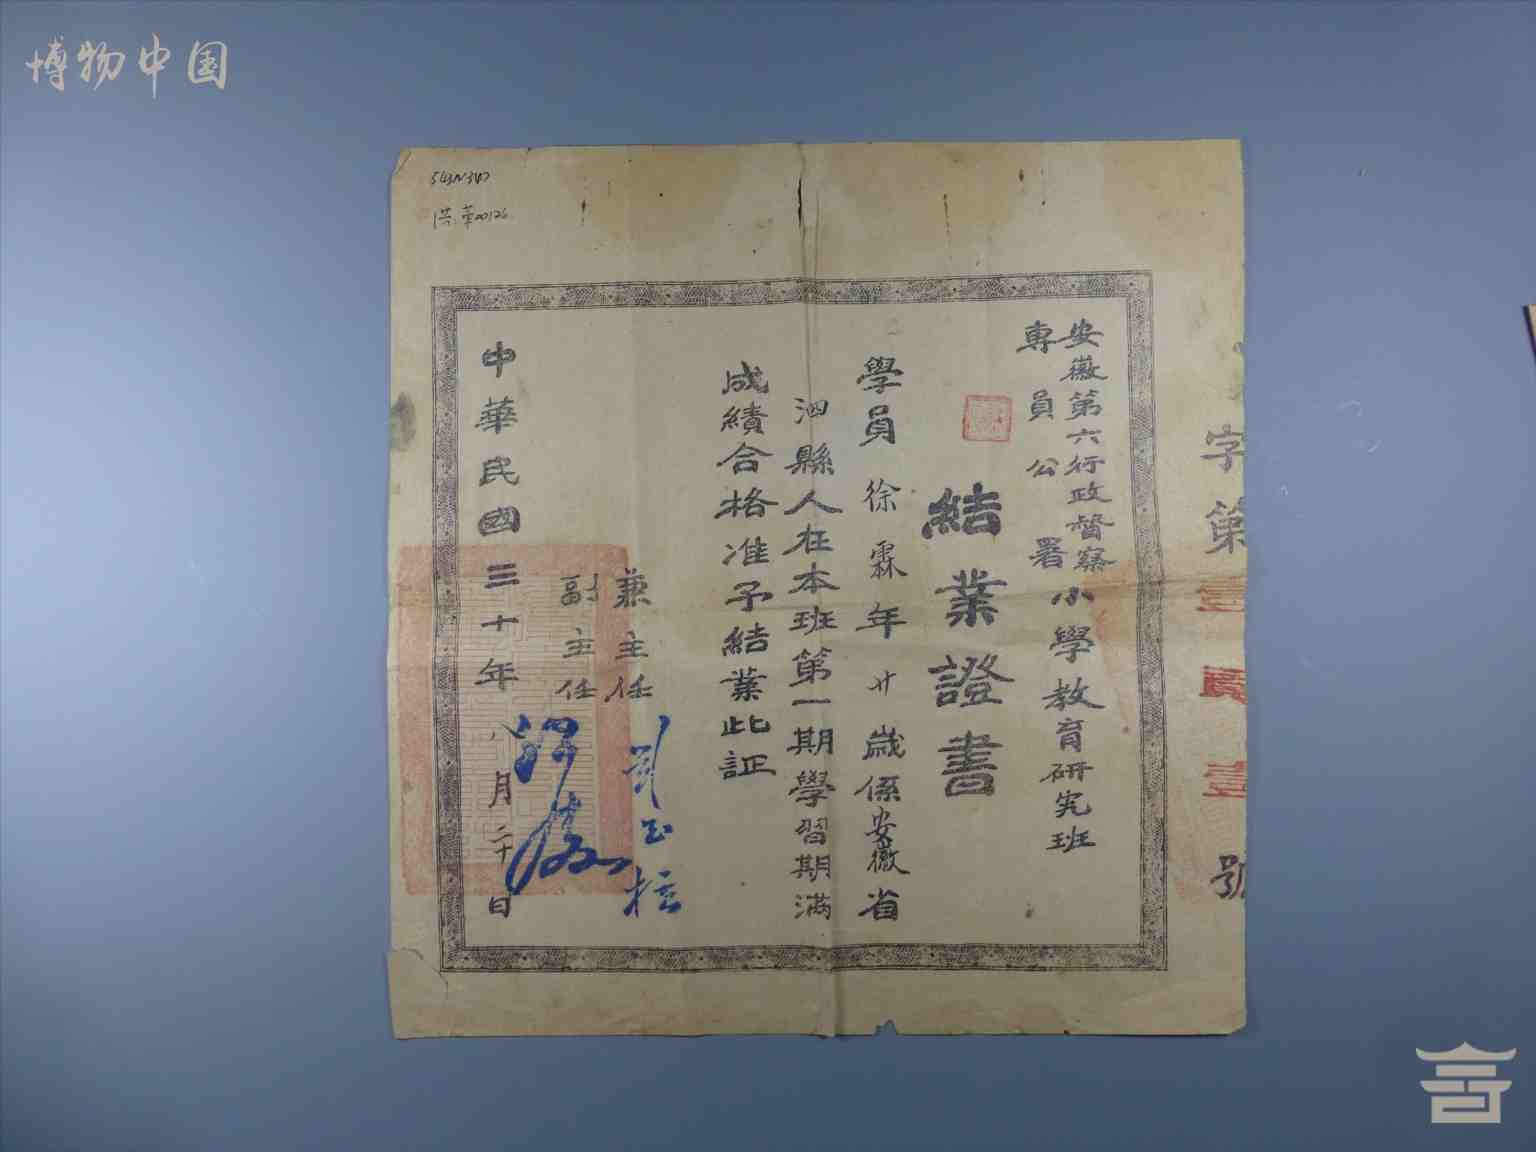 博物中国
安徽第六行政督察
專員公署
小學教育研究班
結業證書
學員徐霖年廿歲係安徽省
泗縣人在本班第一期學習期滿
成績合格准予結業此証
兼主任
副主任
中華民國三十年八月二十日
字第壹 壹號